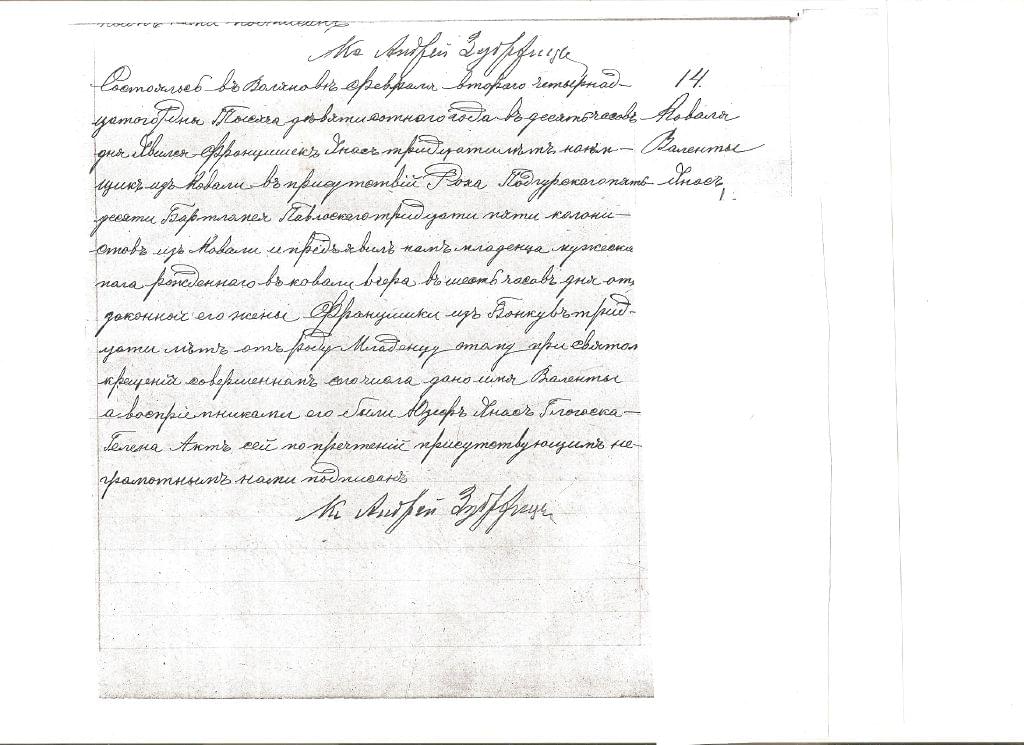 Кс Андрей
Состоялось въ Воляновъ Февраля второго четырнад-
цатого Дны Тысяча девятисотнаго года въ десять часовъ
дня Явился Францишекъ Янасъ тридцати лѣтъ наем-
щикъ изъ Ковали въ присутствій Роха Подгурскаго пять
десяти Бартламея Павлоскаго тридцати пяти колони-
стовъ изъ Ковали и предъявилъ намъ младенца мужеска
пага рожденнаго въ ковали вчера въ шесть часовъ дня отъ
законныя его жены Францишки изъ Бонкувъ трид-
цати лѣтъ отъ роду Младенцу этапу при святом
крещеній совершенномъ сегочисла дано имя Валенты
а воспріемниками его были Юзефъ Янасъ Глогоска
Гелена Актъ сей по прочтеній присутствующимъ не-
грамотнымъ нами подписанъ
Кс Андрей
14.
Коваля
Валенты
Янасъ
1.